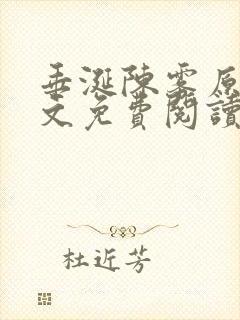 垂涎陳霁原
文免費閱讀
杜近芳